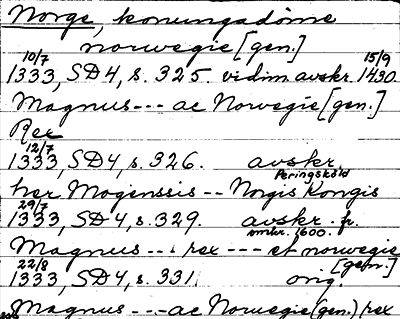 Norge, konungadöme
norwegie [gen.]
10/7 15/9
1333, SD4, s. 325 vidim. avskr. 1430.
Magnus --- ac Norwegie [gen.]
Rex
12/7
1333, SD4, s. 326. avskr.
Peringskiöld
her Mogenssis -- Norgis Kongis
29/7
1333, SD4, s. 329. avskr. fr.
omkr. 1600.
Magnus --- rex --- et norwegie
22/8 [gen.]
1333, SD4, s. 331. orig.
Magnus --- ac Norwegie (gen.) rex